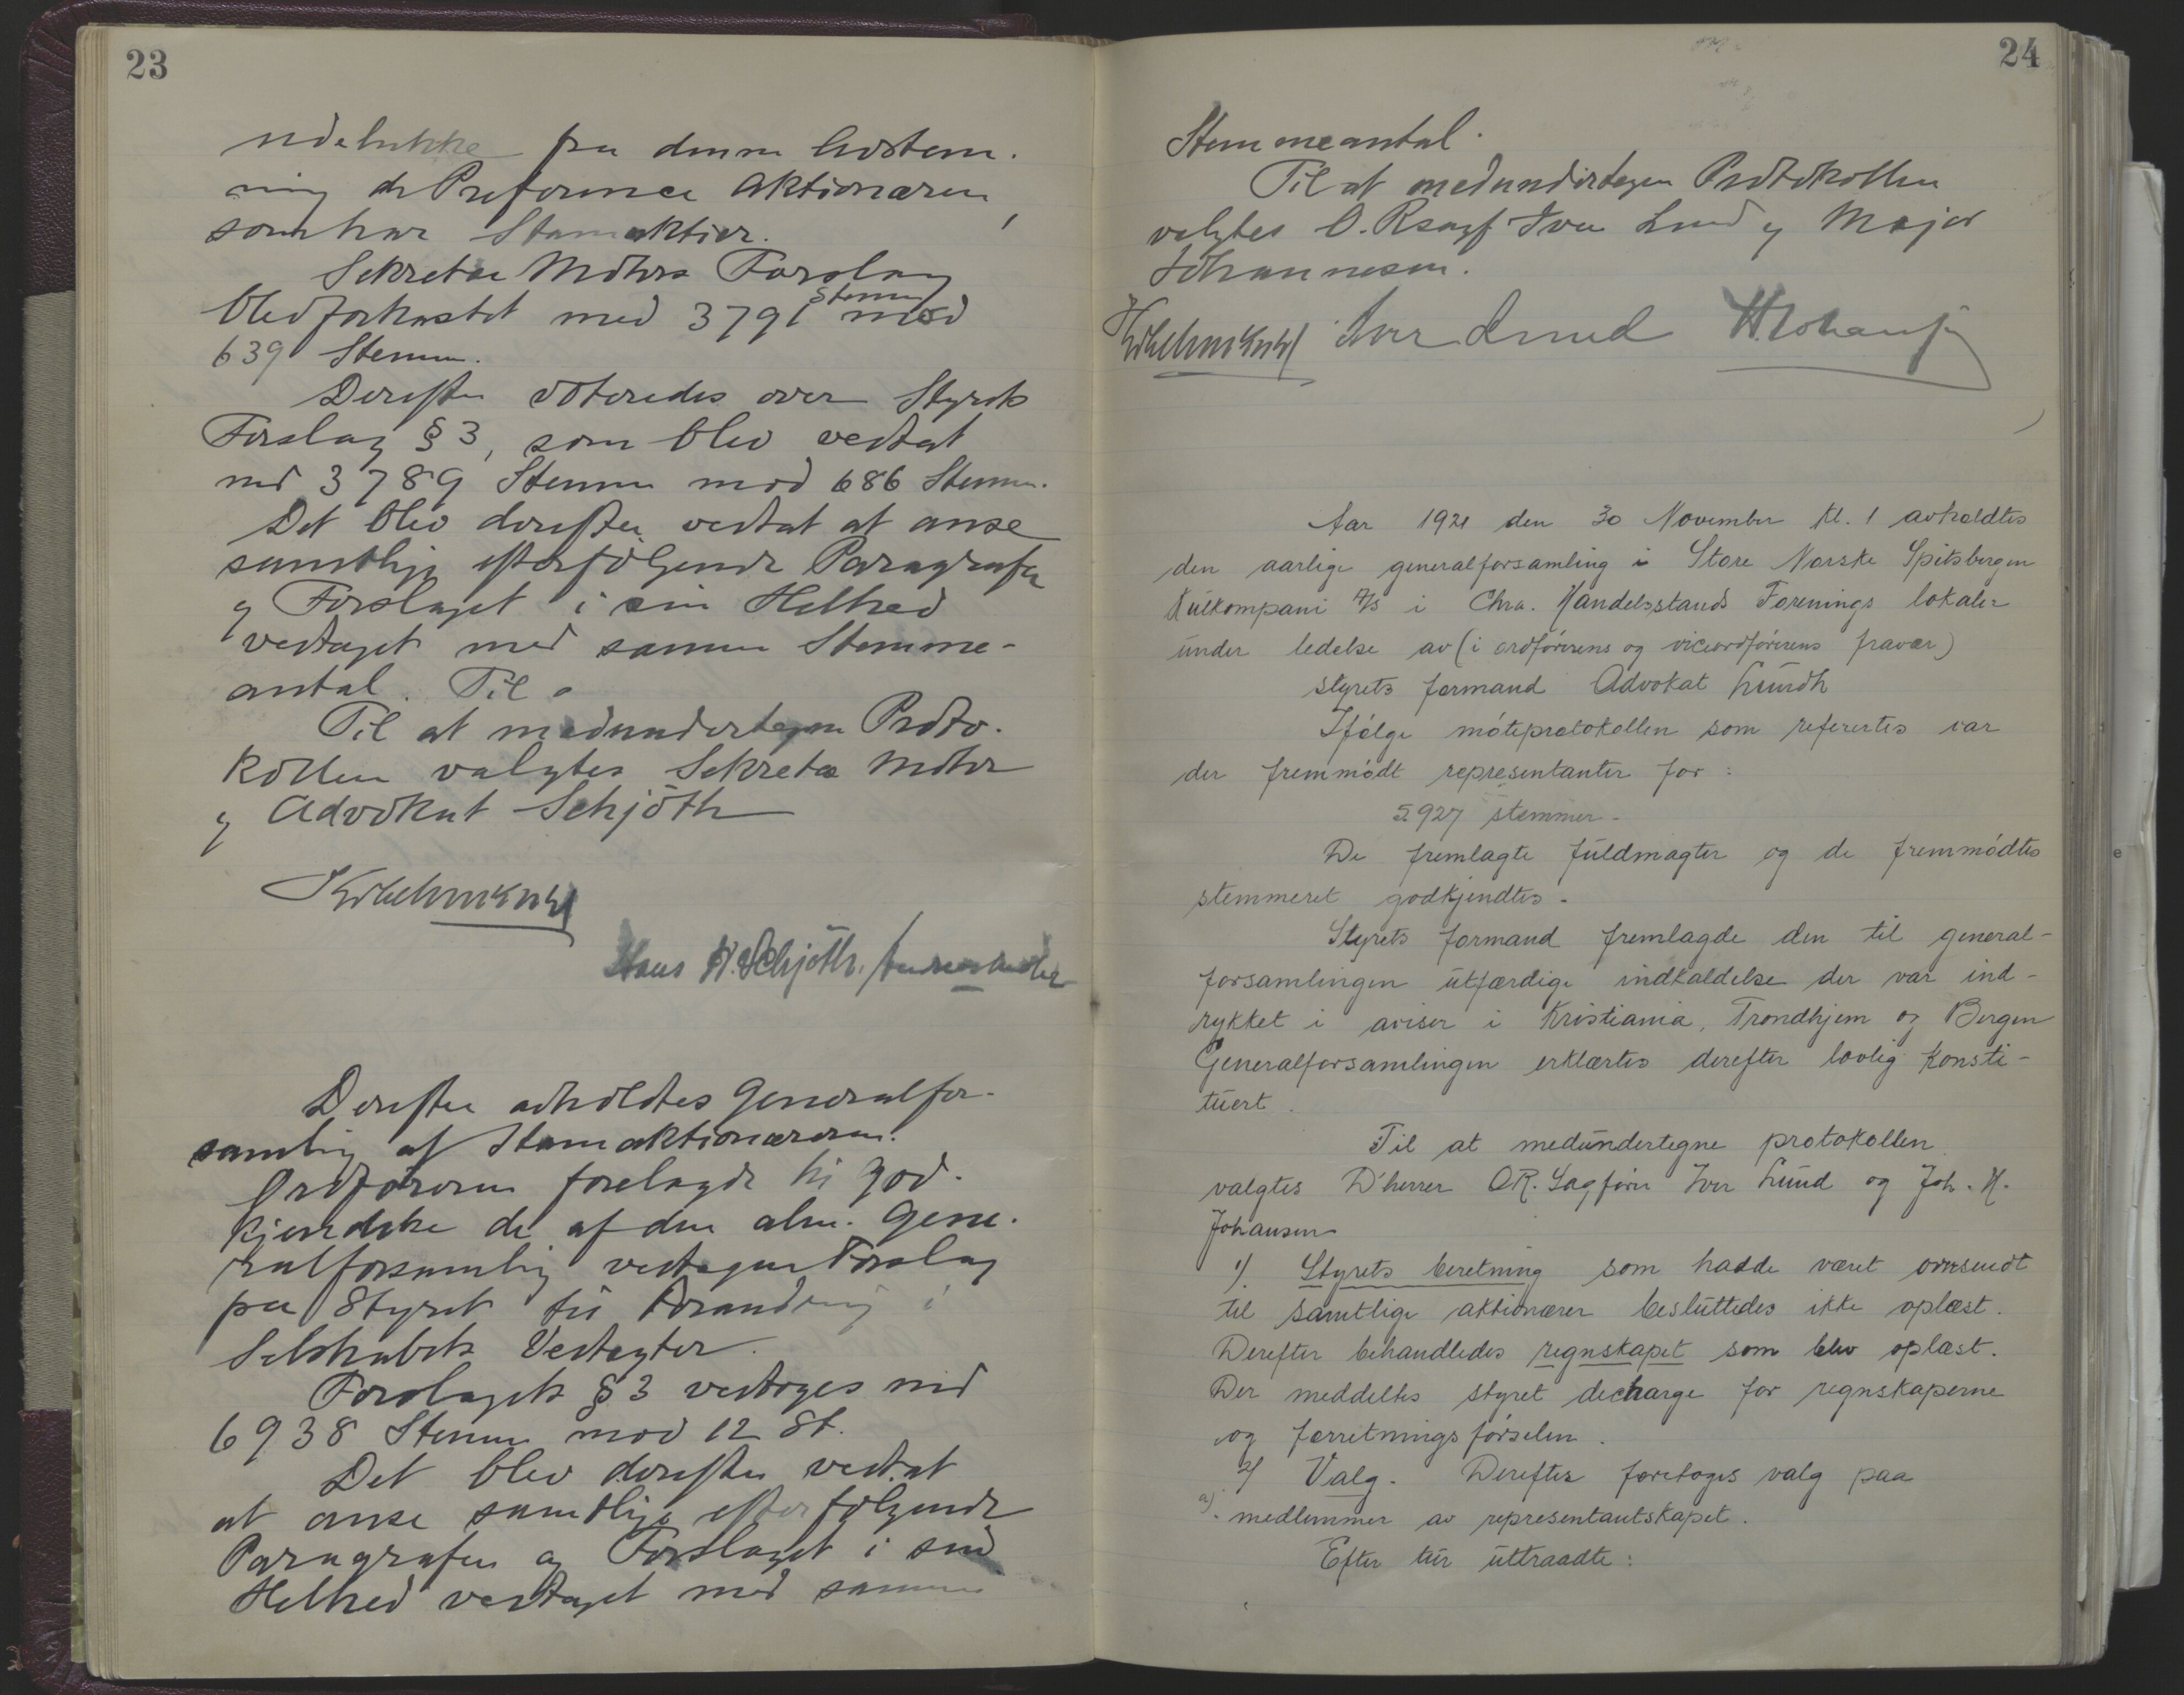 23
udelukke fra denne Avstem-
ning de Preference Aktionærer,
som har Stamaktier.
Sekretær Mohrs Forslag
blev forkastet med 3791 Stemmer mod
639 Stemmer.
Derefter voteredes over Styrets
Forslag § 3, som blev vedtat
med 3789 Stemmer mod 686 Stemmer.
Det blev derefter vedtat at anse
samtlige efterfølgende Paragrafer
og Forslaget i sin Helhed
vedtaget med samme Stemme-
antal. Til
Til at medundertegne Proto-
kollen valgtes Sekretær Mohr
og Advokat Schjöth
Hans H. Schjöth.
Derefter avholdtes Generalfor-
samling af Stamaktionærerne.
Ordføreren forelagde til God-
kjendelse de af den alm. Gene-
ralforsamling vedtagne Forslag
fra Styret til Forandring i
Selskabets Vedtægter.
Forslagets § 3 vedtoges med
6938 Stemmer mod 12 St.
Det blev derefter vedtat
at anse samtlige efterfølgende
Paragrafer og Forslaget i sin
Helhed vedtaget med samme
24
Stemmeantal.
Til at medundertegne Protokollen
valgtes O. Rsagf Iver Lund og Major
Johannesen.
Iver Lund
Aar 1921 den 30 November kl. 1 avholdtes
den aarlige generalforsamling i Store Norske Spitsbergen
Kulkompani A/S i Chra. Handelsstands Forenings lokaler
under ledelse av (i ordførerens og viceordførerens fravær)
styrets formand Advokat Lundh
Ifølge møteprotokollen som refertes var
der fremmødt representanter for:
5927 stemmer.
De fremlagte fuldmagter og de fremmødtes
stemmeret godkjendtes.
Styrets formand fremlagde den til general-
forsamlingen utfærdige indkaldelse der var ind-
rykket i aviser i Kristiania, Trondhjem og Bergen
Generalforsamlingen erklærtes derefter lovlig konsti-
tuert.
Til at medundertegne protokollen
valgtes D'herrer OR. Sagfører Iver Lund og Joh. H.
Johansen
1). Styrets beretning som hadde været oversendt
til samtlige aktionærer besluttedes ikke oplæst.
Derefter behandledes regnskapet som blev oplæst.
Der meddeltes styret decharge for regnskaperne
og forretningsførselen.
2) Valg. Derefter foretoges valg paa
a). medlemmer av representantskapet.
Efter tur uttraadte: